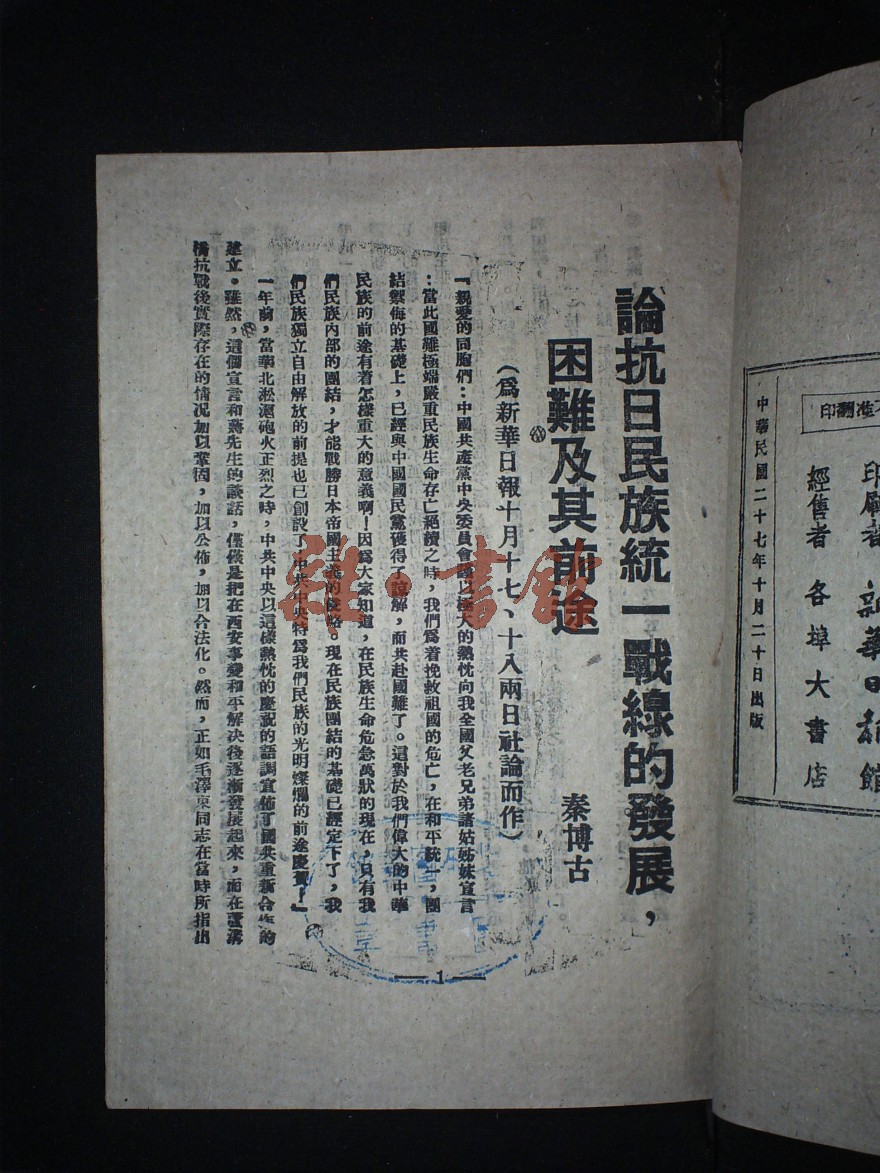 論抗日民族統一戰線的發展，
困難及其前途
秦博古
（爲新華日報十月十七、十八兩日社論而作）
『親愛的同胞們：中國共產黨中央委員會謹以極大的熱忱向我全國父老兄弟諸姑姊妹宣言
：當此國難極端嚴重民族生命存亡絕續之時，我們爲着挽救祖國的危亡，在和平統一，團
結禦侮的基礎上，已經與中國國民黨獲得了諒解，而共赴國難了。這對於我們偉大的中華
民族的前途有着怎樣重大的意義啊！因爲大家知道，在民族生命危急萬狀的現在，只有我
們民族內部的團結，才能戰勝日本帝國主義的侵略。現在民族團結的基礎已經定下了，我
們民族獨立自由解放的前提也已創設了，中共中央特爲我們民族的光明燦爛的前途慶賀！』
一年前，當華北淞滬砲火正烈之時，中共中央以這樣熱忱的慶祝的語調宣佈了國共重新合作的
建立。雖然，這個宣言和蔣先生的談話，僅僅是把在西安事變和平解決後逐漸發展起來，而在蘆溝
橋抗戰後實際存在的情況加以鞏固，加以公佈，加以合法化。然而，正如毛澤東同志在當時所指出
— 1 —
准翻印
印刷者 新華日報館
經售者 各埠大書店
中華民國二十七年十月二十日出版
雜·書館